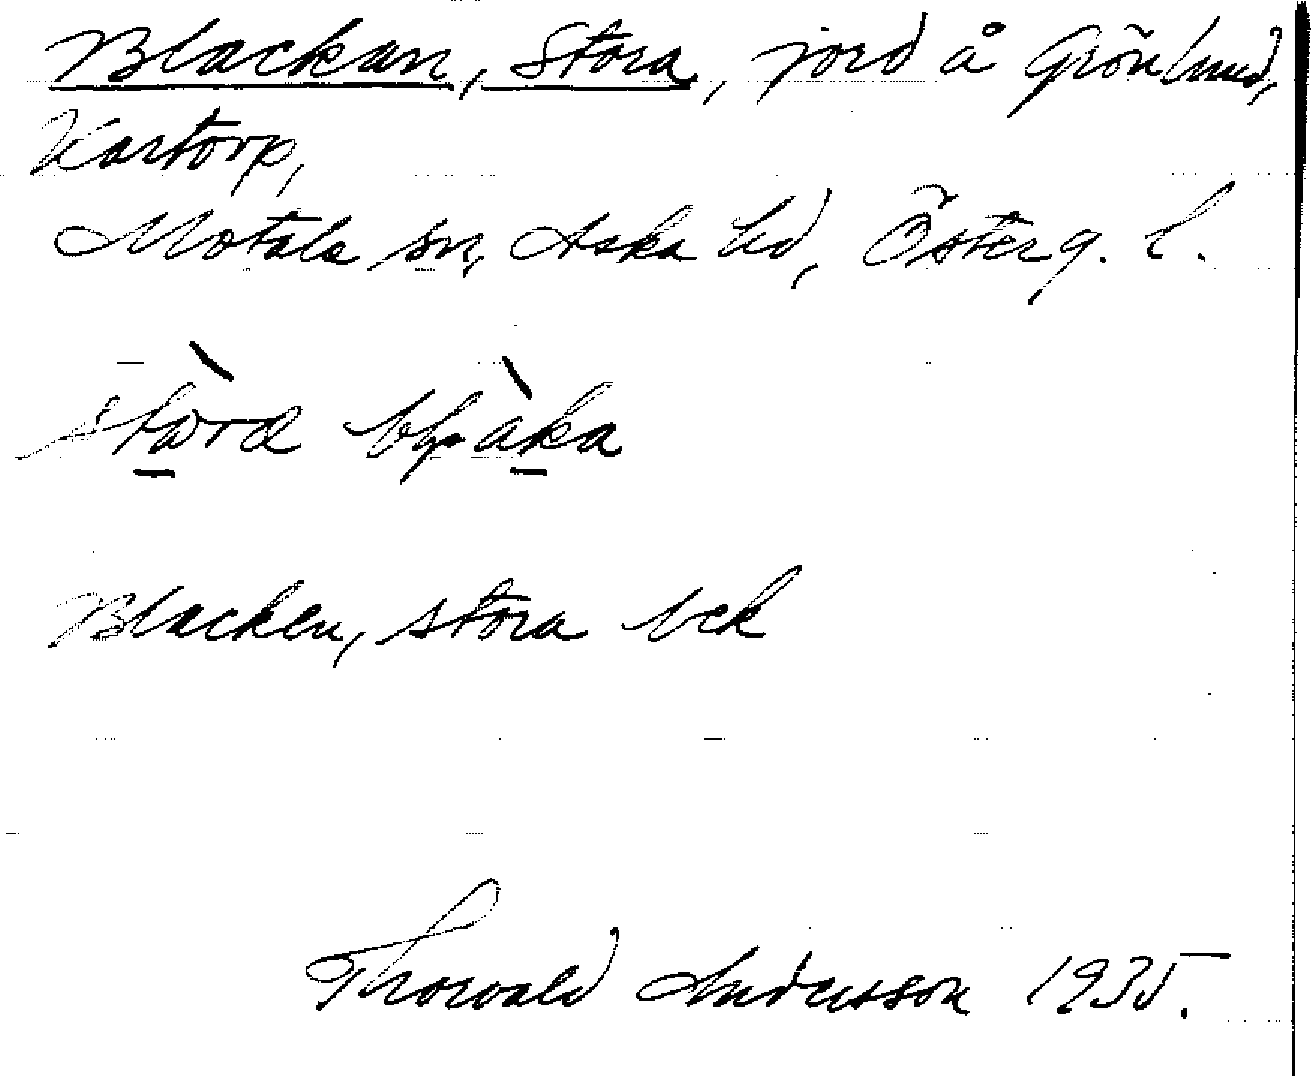 Blackan, Stora, jord å Grönlund,
Kartorp,
Motala sn, Aska hd, Österg. l.
stòra
Blacken, stora bek
Thorvald Andersson 1935.